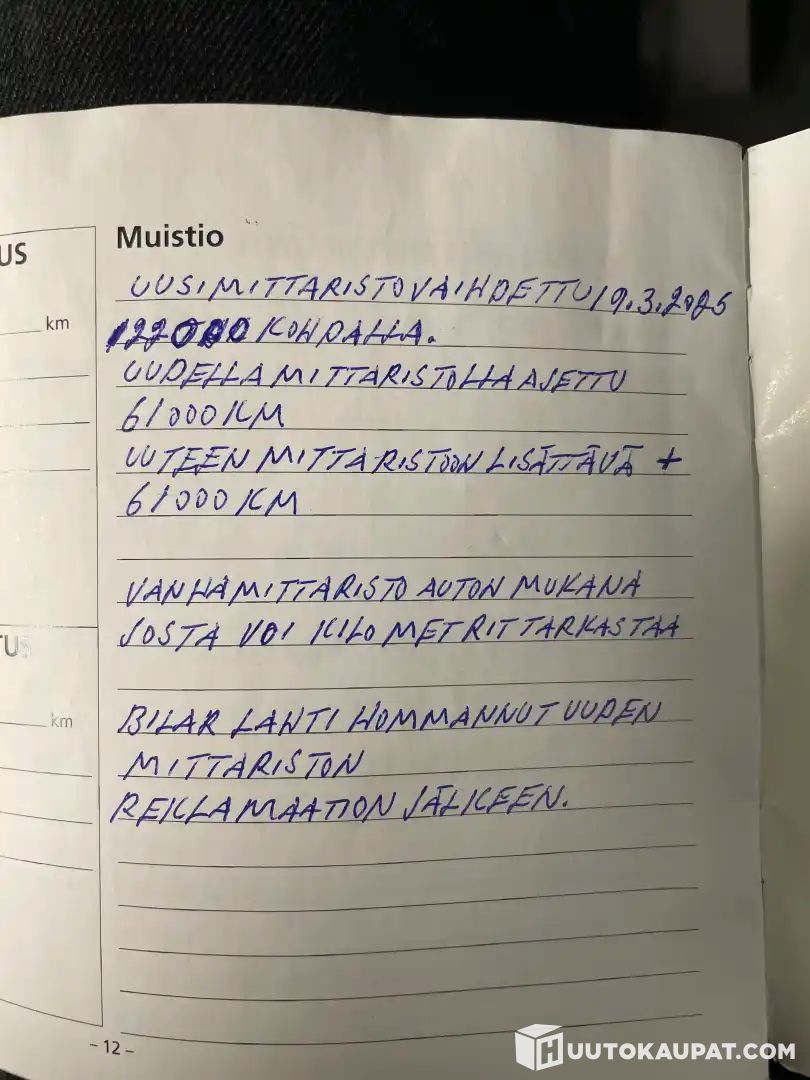 US
km
TU
km
Muistio
UUSI MITTARISTO VAIHDETTU 19.3.2025
122000 KOHDALLA.
UUDELLA MITTARISTOLLA AJETTU
61000 KM
UUTEEN MITTARISTOON LISÄTTÄVÄ +
61000 KM
VANHA MITTARISTO AUTON MUKANA
JOSTA VOI KILOMETRIT TARKASTAA
BILAR LAHTI HOMMANNUT UUDEN
MITTARISTON
REKLAMAATION JÄLKEEN.
- 12 -
HUUTOKAUPAT.COM